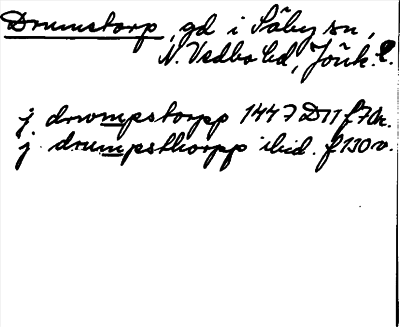 Drumstorp, gd i Säby sn,
N. Vedbo hd, Jönk. l.
j drwmpstorpp 1447 D11 f7r.
j drumpsthorpp ibid. f130v.